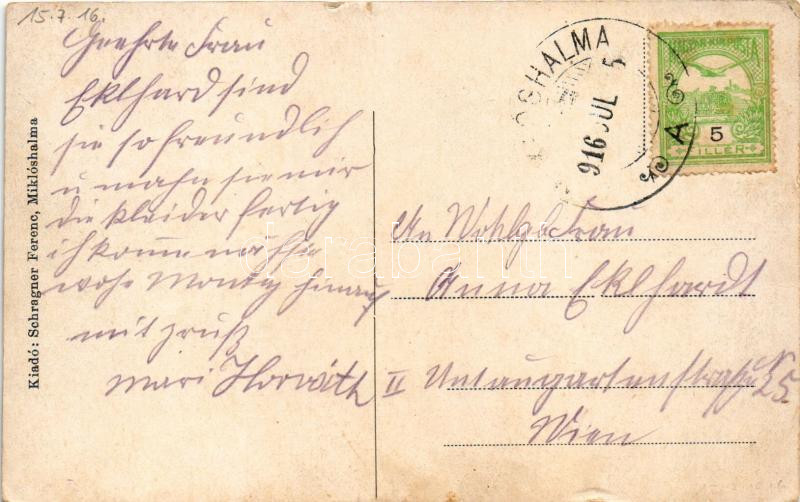 15.7.16.
Geehrte Frau
Eklhard sind
sie so freundlich
u mahn sie mir
die kleider fertig
ich kome näste
wohe Montag hinauf
mit gruß
Mari Horváth
Kiadó: Schragner Ferenc, Miklóshalma
OSHALMA
916 JUL 5
A
5
FILLÉR
An Wohlgb Frau
Anna Eklhardt
II Untaugartenstraße N 25.
Wien